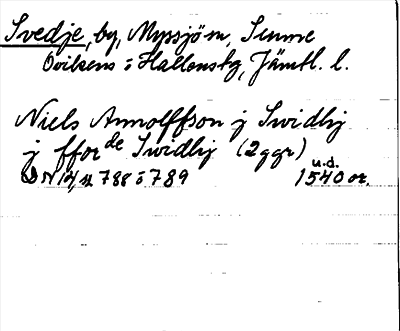 Svedje, by, Myssjö sn, Sunne
Ovikens o Hallens tg, Jämtl. l.
Niels Arnolffson j Swidhj
j ffor de Swidhj (2 ggr)
DN 14, s 788 o 789 u.d. 1540 or.